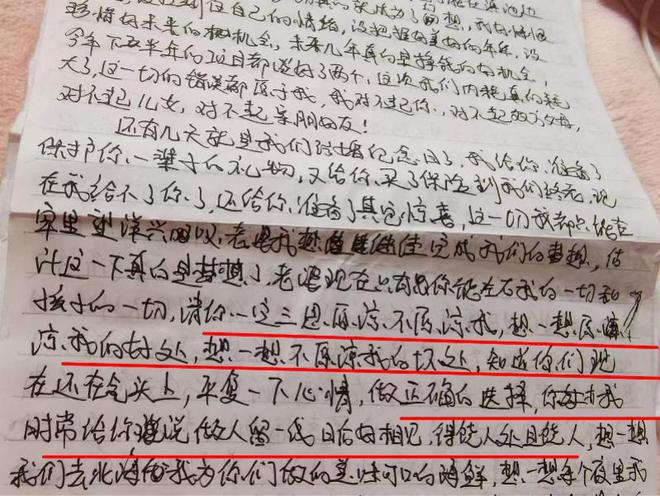 到自己的情绪，没把握好
好未来的机会，未来几年真的是挣钱的好机会，
今年下半年的项目都谈好了两个，这次我们内耗真的耗
大了，这一切的错误都源于我，我对不起你，对不起父母，
对不起儿女，对不起亲朋好友！
还有几天就是我们结婚纪念日了，我给你准备了
保护你一辈子的礼物，又给你买了保险到我们终老，现
在我给不了你了，还给你准备了其它惊喜，这一切我都只能在
牢里，老婆我想完成我们的梦想，估
计这一下真的是梦想了，老婆现在只有你能左右我的一切和
孩子的一切，请你一定三思，原谅不原谅我，想一想原谅
谅我的好处，想一想不原谅我的坏处，知道你们现
在还在气头上，平复一下心情，做正确的选择，你对我
时常给你说做人留一线日后好相见，得饶人处且饶人，想一想
我们去北海我为你们做的美味可口的海鲜，想一想每个夜里我